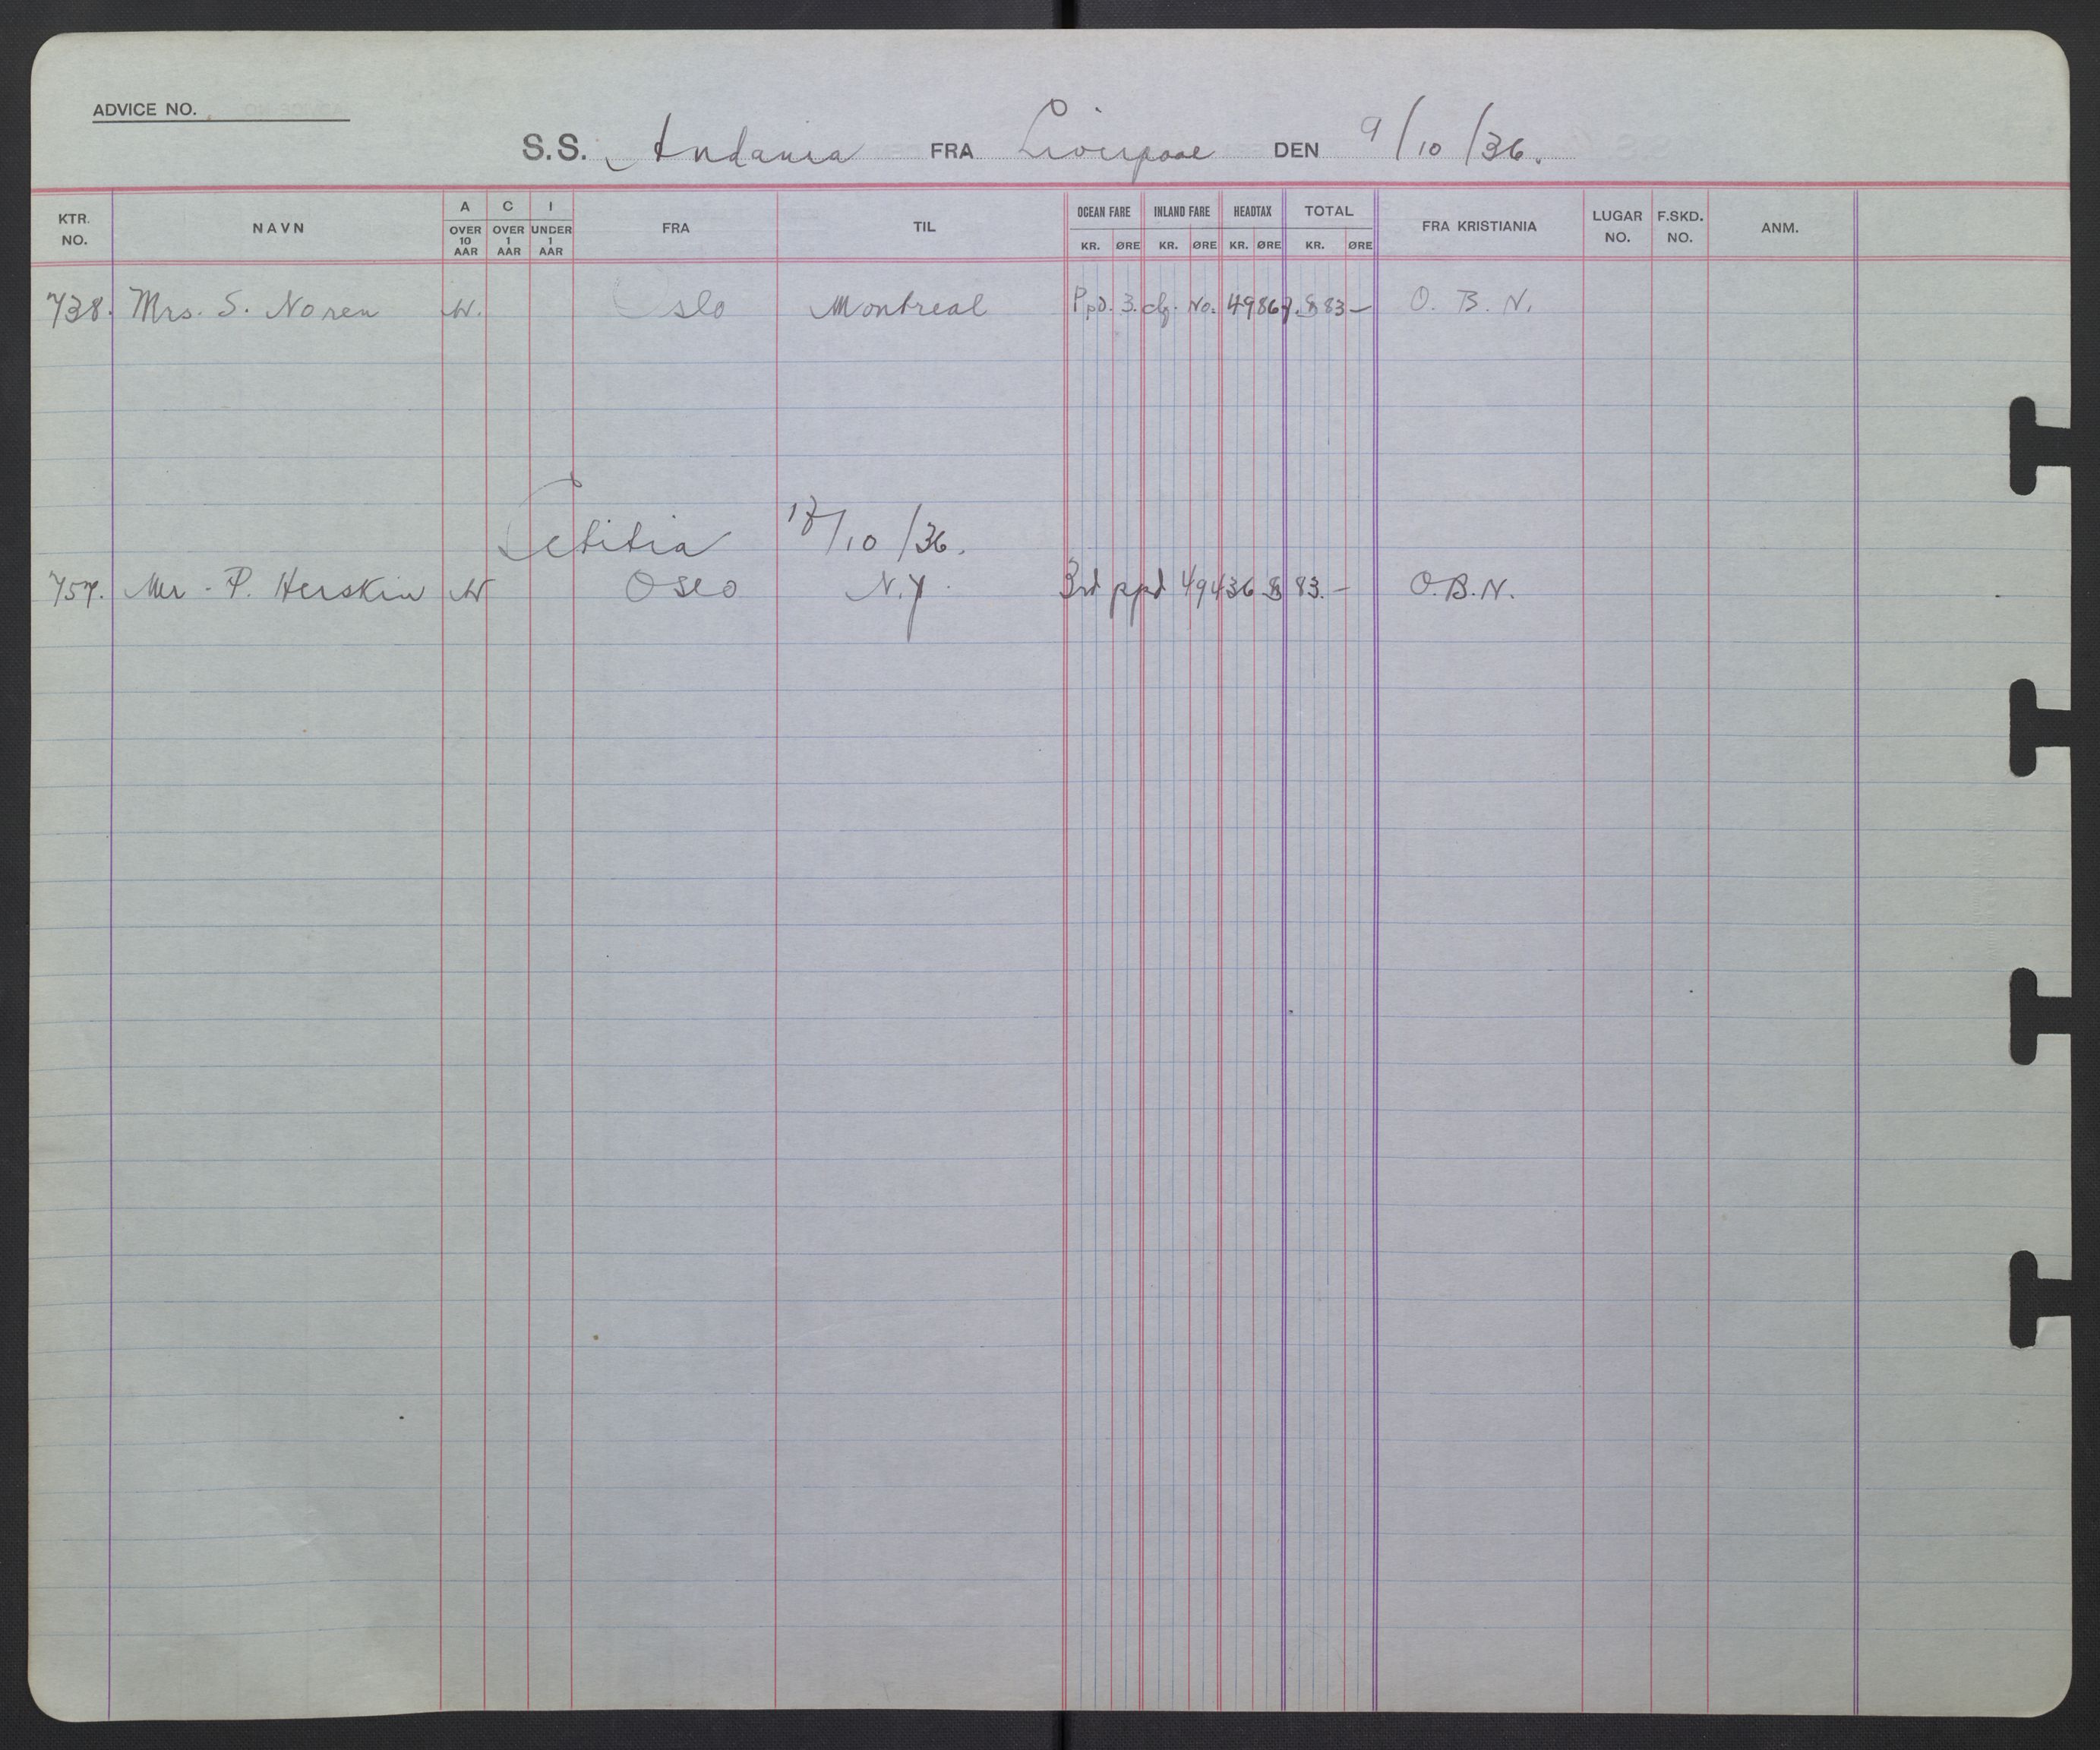 ADVICE NO.
S.S. Andania FRA Liverpool DEN 9/10/36.
KTR. NO. NAVN A OVER 10 AAR C OVER 1 AAR I UNDER 1 AAR FRA TIL OCEAN FARE KR. ØRE INLAND FARE KR. ØRE HEADTAX KR. ØRE TOTAL KR. ØRE FRA KRISTIANIA LUGAR NO. F.SKD. NO. ANM.
738. Mrs. S. Noren W. Oslo Montreal Ppd. 3. clg. No. 49867. $ 83 — O. B. N.
Letitia /10/36.
757. Mr. P. Herskin W Oslo N.Y. 3rd ppd 49436 $ 83.— O.B.N.